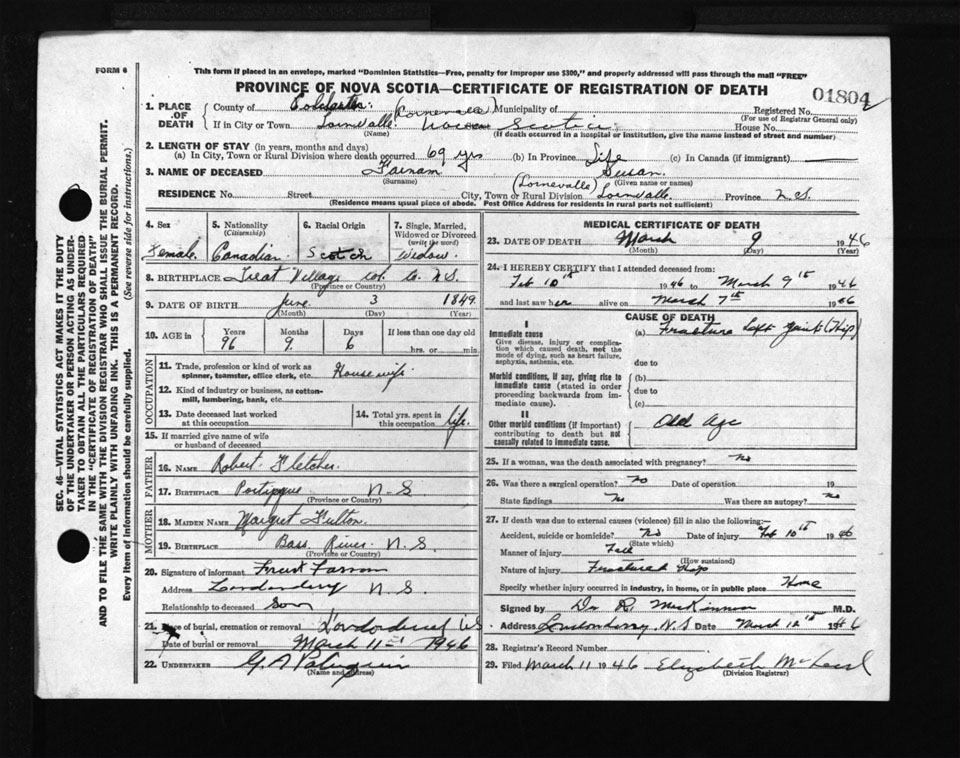 FORM 6
This form if placed in an envelope, marked "Dominion Statistics—Free, penalty for improper use $300," and properly addressed will pass through the mail "FREE"
PROVINCE OF NOVA SCOTIA—CERTIFICATE OF REGISTRATION OF DEATH
01804
1. PLACE OF DEATH
County of Colchester (Lornevale) Municipality of
Registered No.
(For use of Registrar General only)
If in City or Town Lornvalle. Nova Scotia House No.
(Name) (If death occurred in a hospital or institution, give the name instead of street and number)
2. LENGTH OF STAY (in years, months and days)
(a) In City, Town or Rural Division where death occurred 69 yrs (b) In Province Life (c) In Canada (if immigrant)
3. NAME OF DECEASED Susan.
(Surname) (Lornevalle) (Given name or names)
RESIDENCE No. Street City, Town or Rural Division Lornvalle. Province N.S.
(Residence means usual place of abode. Post Office Address for residents in rural parts not sufficient)
4. Sex Female.
5. Nationality (Citizenship) Canadian.
6. Racial Origin Scotch
7. Single, Married, Widowed or Divorced (write the word) Widow.
8. BIRTHPLACE Great Village Col. Co. N.S.
(Province or Country)
9. DATE OF BIRTH June. 3 1849.
(Month) (Day) (Year)
10. AGE in Years 96 Months 9. Days 6 If less than one day old hrs. or min.
OCCUPATION
11. Trade, profession or kind of work as spinner, teamster, office clerk, etc. Housewife
12. Kind of industry or business, as cotton-mill, lumbering, bank, etc.
13. Date deceased last worked at this occupation
14. Total yrs. spent in this occupation life.
15. If married give name of wife or husband of deceased
FATHER
16. NAME Robert Fletcher.
17. BIRTHPLACE Portipque N.S
(Province or Country)
MOTHER
18. MAIDEN NAME Margret Fulton.
19. BIRTHPLACE Bass River N.S.
(Province or Country)
20. Signature of informant
Address Londonderry N.S.
Relationship to deceased Son
21. Place of burial, cremation or removal
Date of burial or removal March 11 1946
22. UNDERTAKER G. A
(Name and Address)
MEDICAL CERTIFICATE OF DEATH
23. DATE OF DEATH March 9 1946
(Month) (Day) (Year)
24. I HEREBY CERTIFY that I attended deceased from:
Feb 10th 1946 to March 9th 1946
and last saw her alive on March 7th 1946
CAUSE OF DEATH
I
Immediate cause
Give disease, injury or complication which caused death, not the mode of dying, such as heart failure, asphyxia, asthenia, etc.
(a) Fracture Left Joint (Hip)
due to
Morbid conditions, if any, giving rise to immediate cause (stated in order proceeding backwards from immediate cause).
(b)
due to
(c)
II
Other morbid conditions (if important) contributing to death but not causally related to immediate cause.
Old Age
25. If a woman, was the death associated with pregnancy? No
26. Was there a surgical operation? No Date of operation 19
State findings No Was there an autopsy? No
27. If death was due to external causes (violence) fill in also the following:—
Accident, suicide or homicide? No Date of injury Feb 10th 1946
(State which)
Manner of injury Fall
(How sustained)
Nature of injury Fractured Hip
Specify whether injury occurred in industry, in home, or in public place Home
Signed by Dr R. MacKinnon M.D.
Address Londonderry, N.S Date March 12th 1946
28. Registrar's Record Number
29. Filed March 11 1946 Elizabeth McLeod
(Division Registrar)
SEC. 46—VITAL STATISTICS ACT MAKES IT THE DUTY
OF THE UNDERTAKER OR PERSON ACTING AS UNDERTAKER TO OBTAIN ALL THE PARTICULARS REQUIRED
IN THE "CERTIFICATE OF REGISTRATION OF DEATH"
AND TO FILE THE SAME WITH THE DIVISION REGISTRAR WHO SHALL ISSUE THE BURIAL PERMIT.
WRITE PLAINLY WITH UNFADING INK. THIS IS A PERMANENT RECORD.
Every item of Information should be carefully supplied. (See reverse side for instructions.)